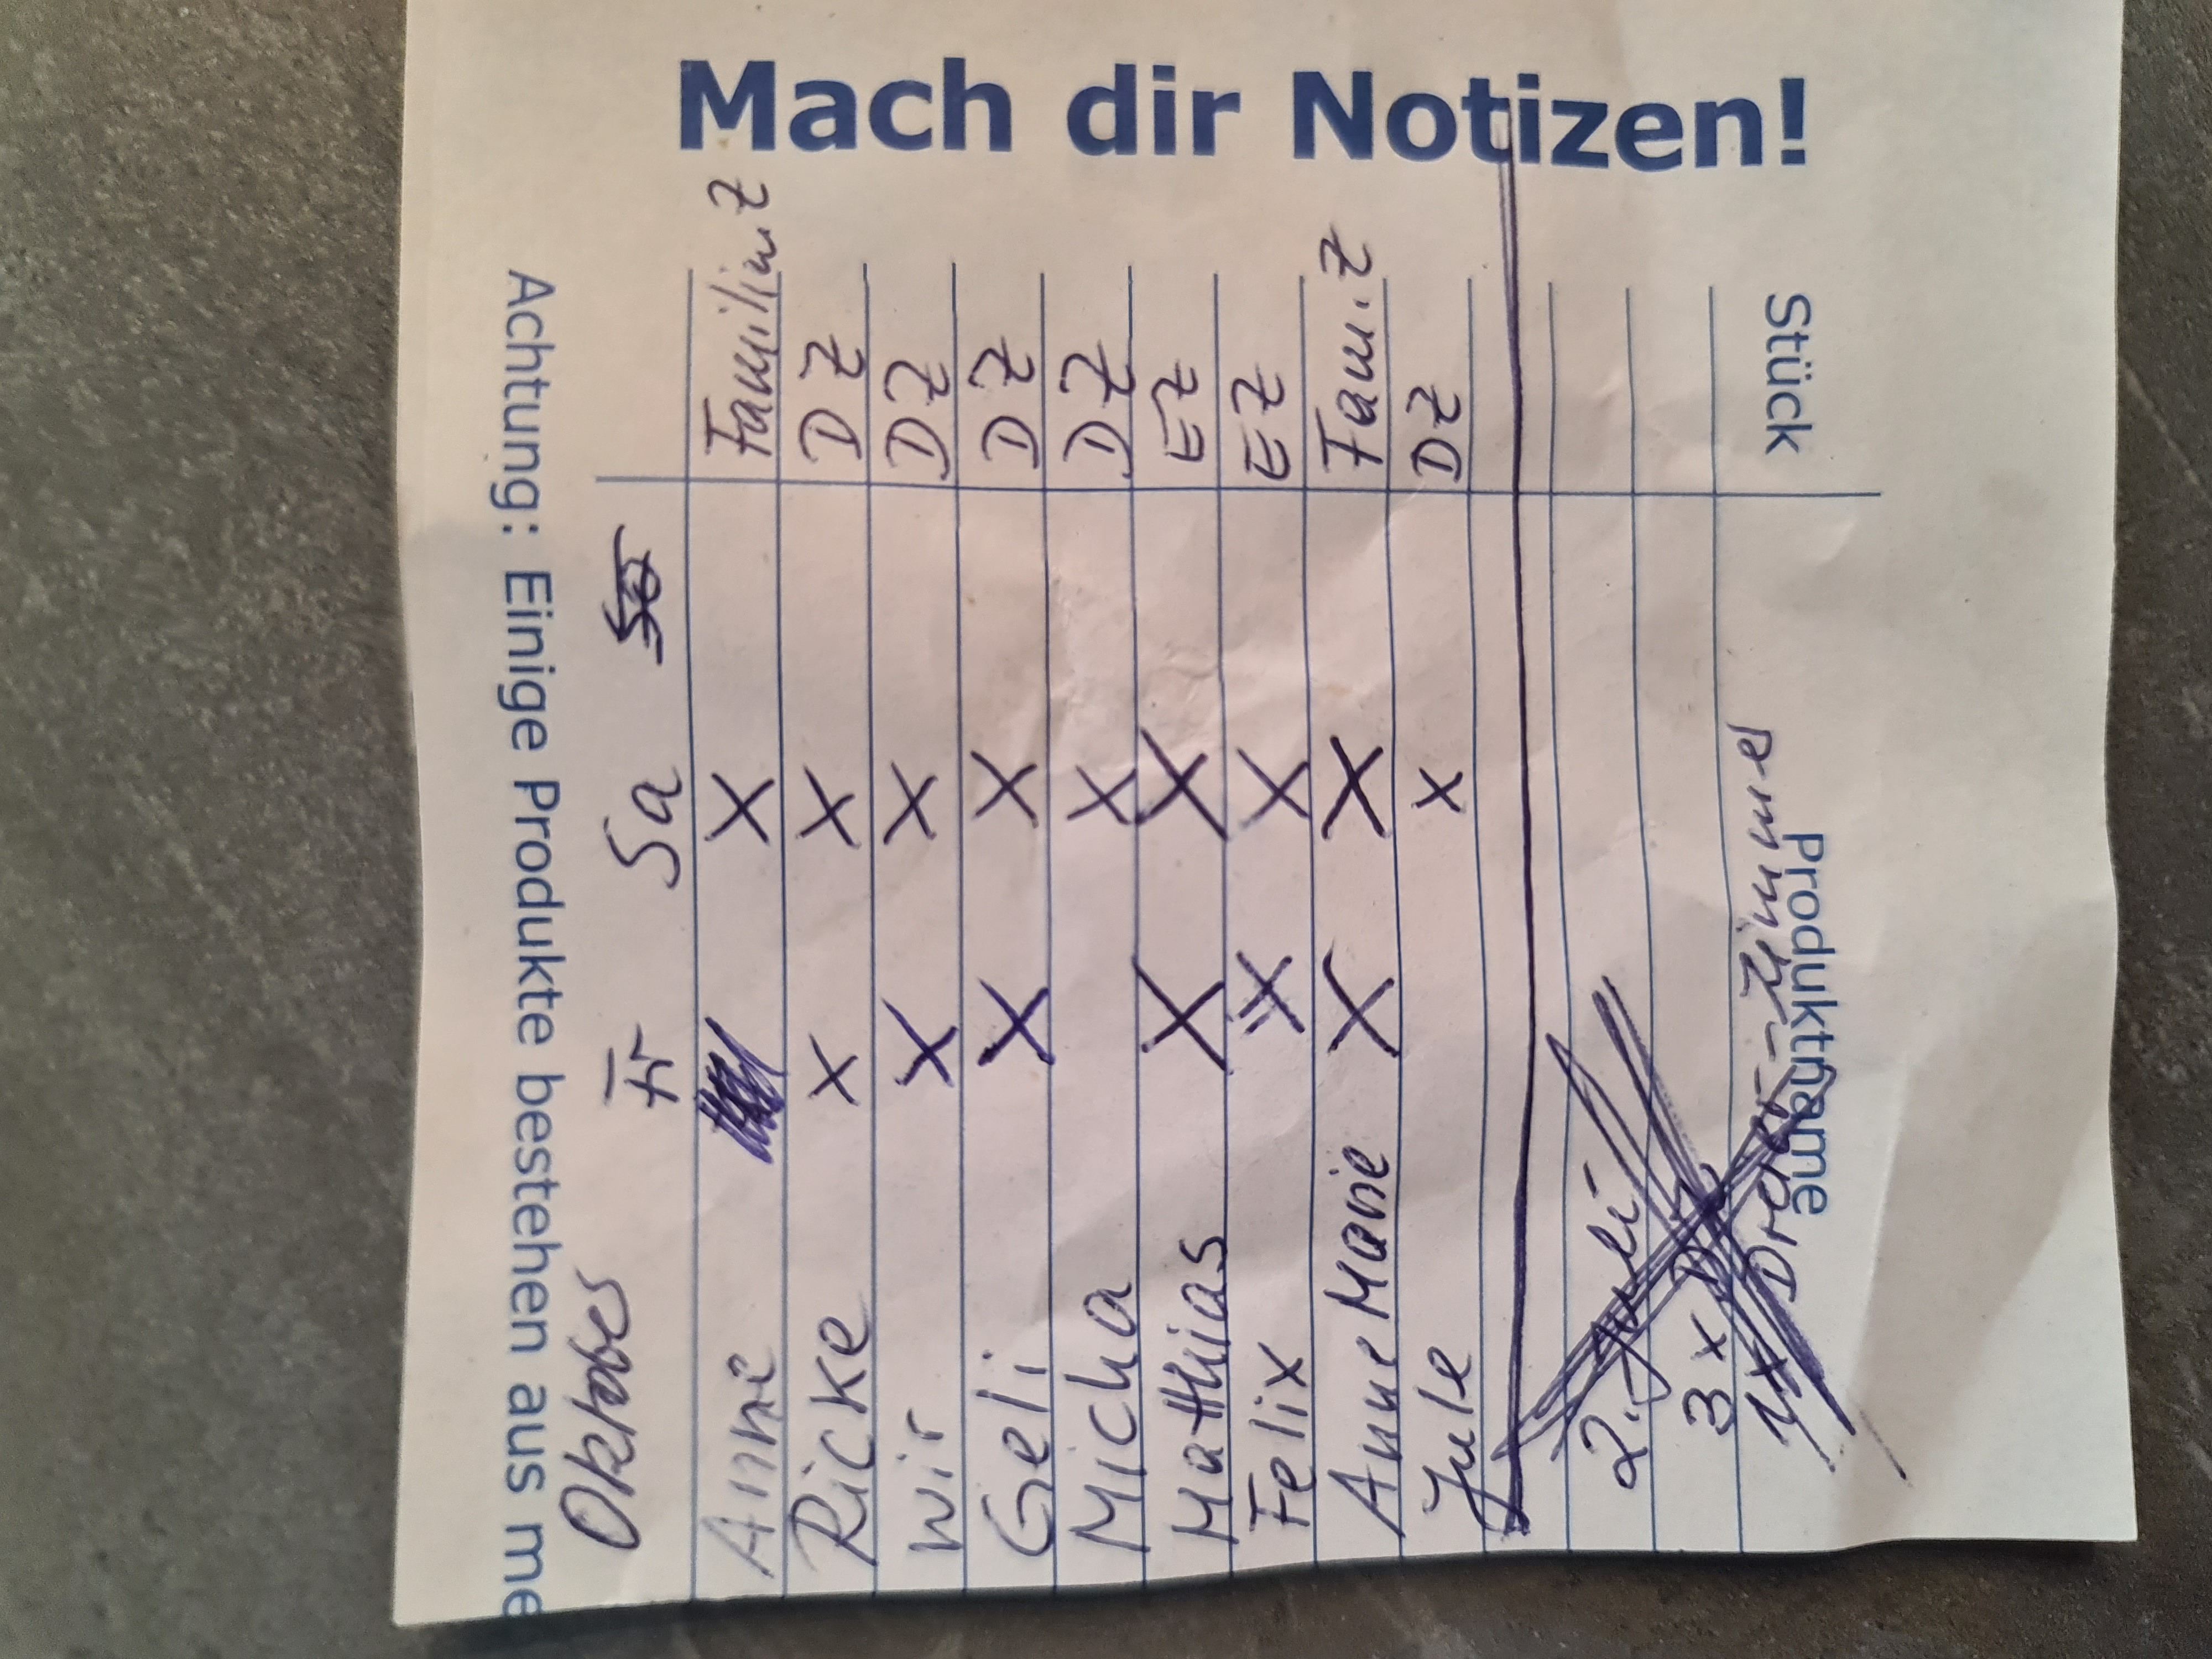 Mach dir Notizen!
Achtung: Einige Produkte bestehen aus me
Stück
Produktname
Oktober Fr Sa
Anne X Familien.Z
Ricke X X DZ
Wir X X DZ
Geli X X DZ
Micha X DZ
Matthias X X EZ
Felix X X EZ
Anne Marie X X Fam.Z
Jule X DZ
2. Juli
3x DZ
1x Dreier-Zimmer